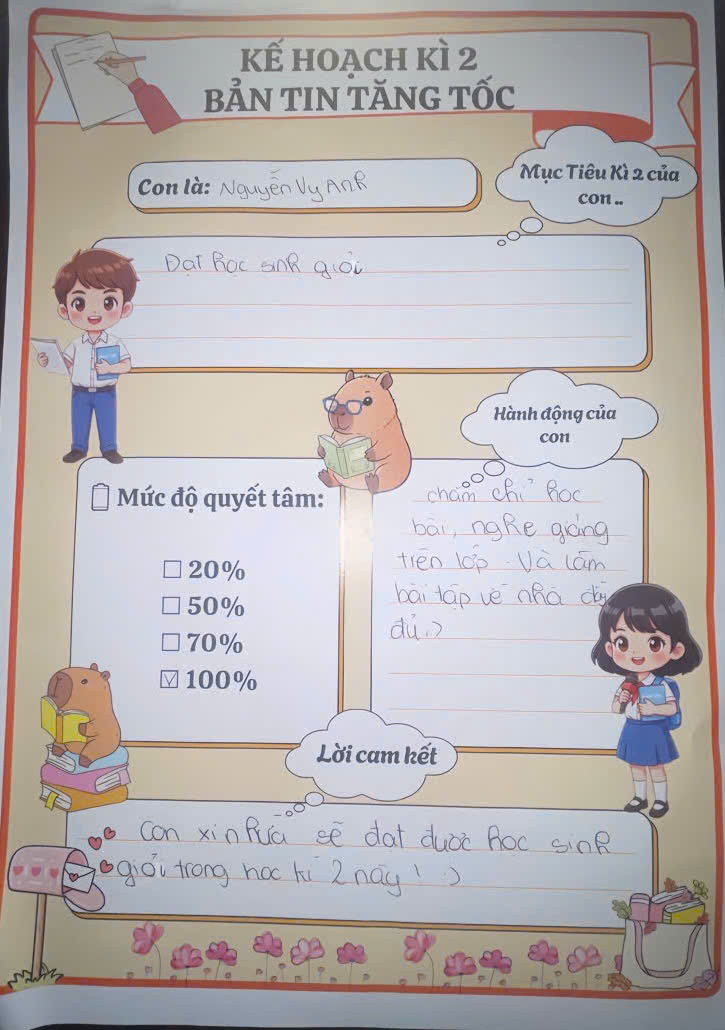 KẾ HOẠCH KÌ 2
BẢN TIN TĂNG TỐC
Con là: Nguyễn Vy Anh
Mục Tiêu Kì 2 của
con ..
Đạt học sinh giỏi
Mức độ quyết tâm:
20%
50%
70%
100%
Hành động của
con
chăm chỉ học
bài, nghe giảng
trên lớp. Và làm
bài tập về nhà đầy
đủ :)
Lời cam kết
Con xin hứa sẽ đạt được học sinh
giỏi trong học kì 2 này! :)